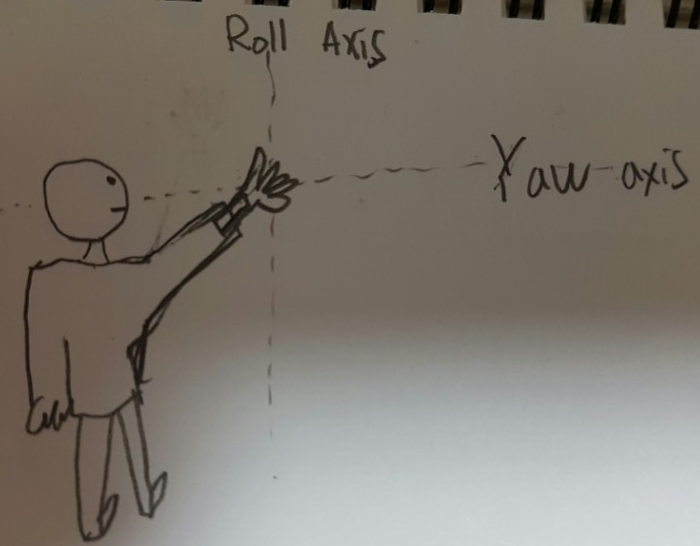 Roll Axis
Yaw-axis